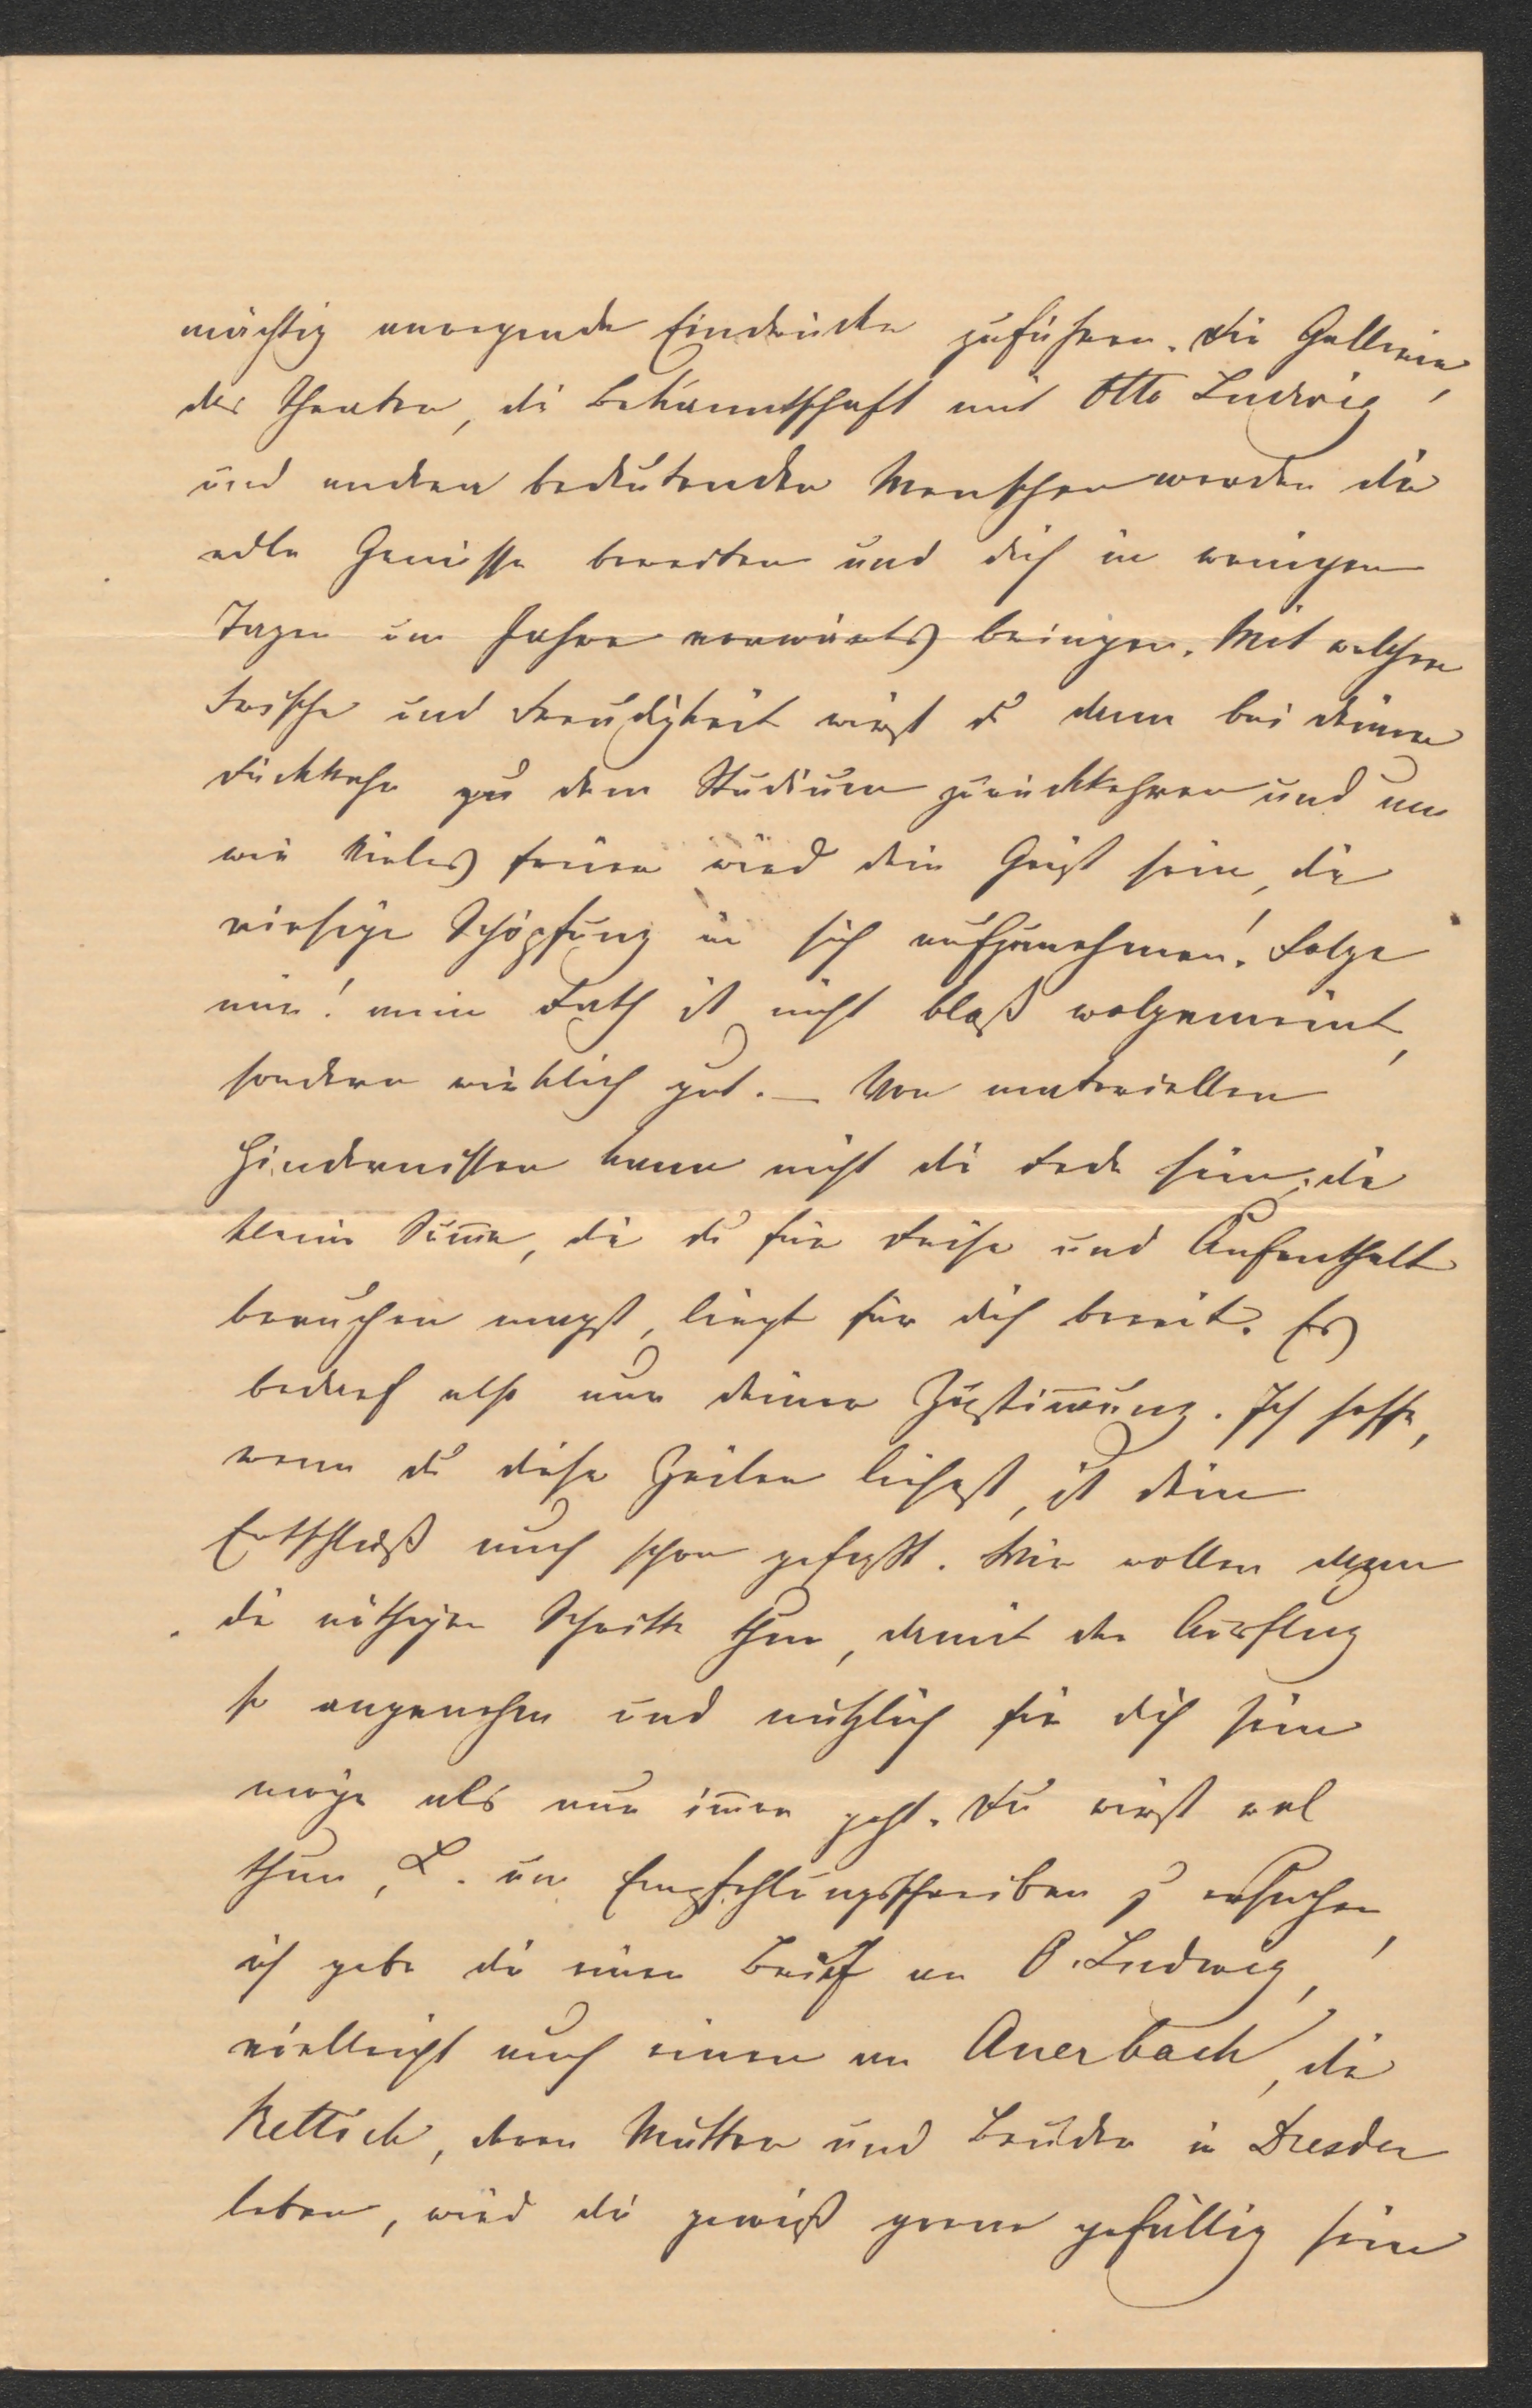 mächtig anregende Eindrücke zuführen. Die Gallerie,
das Theater, die Bekanntschaft mit Otto Ludwig
und andern bedeutenden Menschen werden dir
edle Genüsse bereiten und dich in wenigen
Tagen um Jahre vorwärts bringen. Mit welcher
Frische und Freudigkeit wirst du dann bei deiner
Rückkehr zu dem Studium zurückkehren und um
wie Vieles freier wird dein Geist sein, die
riesige Schöpfung in sich aufzunehmen! Folge
mir! mein Rath ist nicht bloß wolgemeint,
sondern wirklich gut. – Von materiellen
Hindernissen kann nicht die Rede sein; die
kleine Sum̅e, die du für Reise und Aufenthalt
brauchen magst, liegt für dich bereit. Es
bedarf also nur deiner Zustim̅ung. Ich hoffe,
wenn du diese Zeilen liesest, ist dein
Entschluß auch schon gefaßt. Wir wollen dann
die nöthigen Schritte thun, damit der Ausflug
so angenehm und nützlich für dich sein
möge als nur im̅er geht. Du wirst wol
thun, L. um Empfehlungsschreiben zu ersuchen,
ich gebe dir einen Brief an O. Ludwig,
vielleicht auch einen an Auerbach, die
Rettich, deren Mutter und Bruder in Dresden
leben, wird dir gewiß gerne gefällig sein